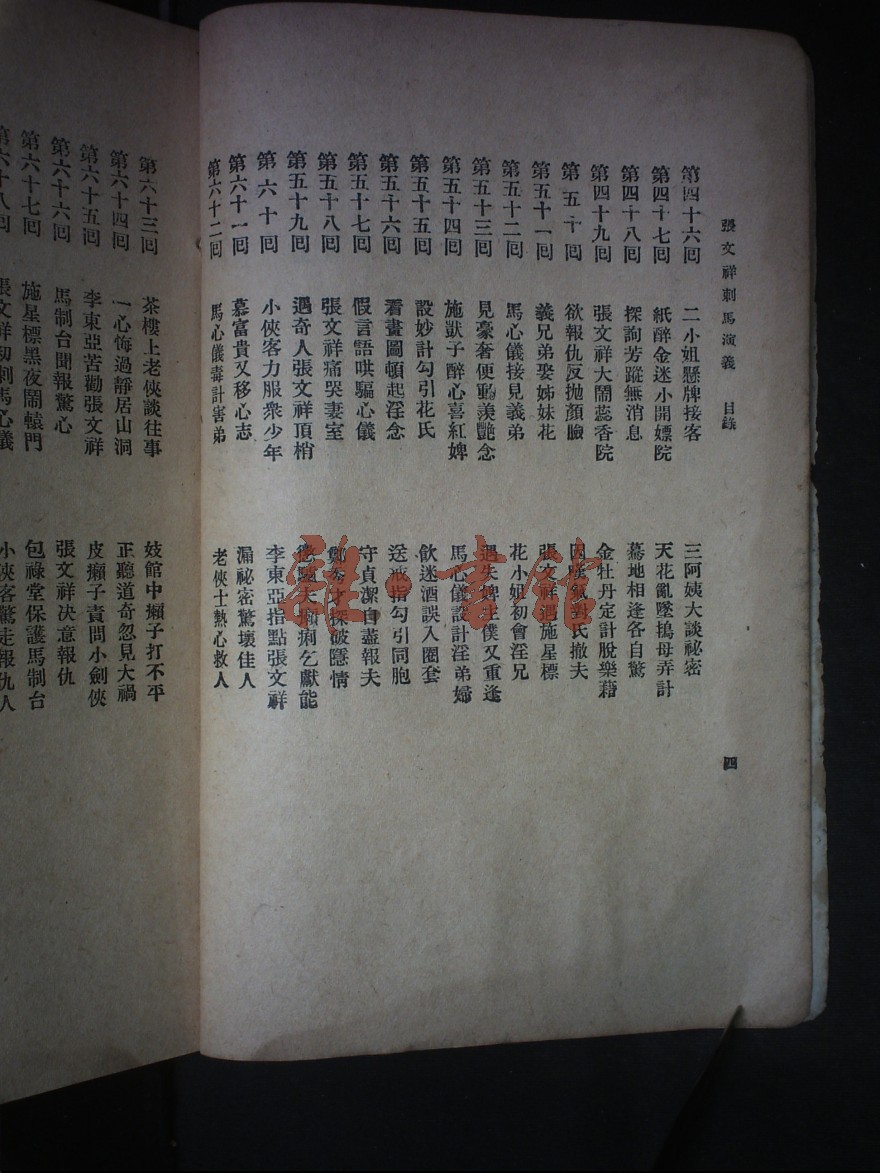 張文祥刺馬演義 目錄 四
第四十六囘 二小姐懸牌接客 三阿姨大談祕密
第四十七囘 紙醉金迷小開嫖院 天花亂墜搗母弄計
第四十八囘 探詢芳蹤無消息 驀地相逢各自驚
第四十九囘 張文祥大鬧蕊香院 金牡丹定計脫樂藉
第五十囘 欲報仇反抛顏臉 因嘆氣對氏撤夫
第五十一囘 義兄弟娶姊妹花 張文祥遇施星標
第五十二囘 馬心儀接見義弟 花小姐初會淫兄
第五十三囘 見豪奢便動羨艷念 遇失婢主僕又重逢
第五十四囘 施獃子醉心喜紅婢 馬心儀設計淫弟婦
第五十五囘 設妙計勾引花氏 飲迷酒誤入圈套
第五十六囘 看畫圖頓起淫念 送戒指勾引同胞
第五十七囘 假言語哄騙心儀 守貞潔自盡報夫
第五十八囘 張文祥痛哭妻室 鄭秀才探破隱情
第五十九囘 遇奇人張文祥頂梢 夫癩痢乞獻能
第六十囘 小俠客力服衆少年 李東亞指點張文祥
第六十一囘 慕富貴又移心志 漏祕密驚壞佳人
第六十二囘 馬心儀毒計害弟 老俠士熱心救人
第六十三囘 茶樓上老俠談往事 妓館中癩子打不平
第六十四囘 一心悔過靜居山洞 正聽道奇忽見大禍
第六十五囘 李東亞苦勸張文祥 皮癩子責問小劍俠
第六十六囘 馬制台聞報驚心 張文祥決意報仇
第六十七囘 施星標黑夜鬧轅門 包祿堂保護馬制台
第六十八囘 張文祥初刺馬心儀 小俠客驚走報仇人